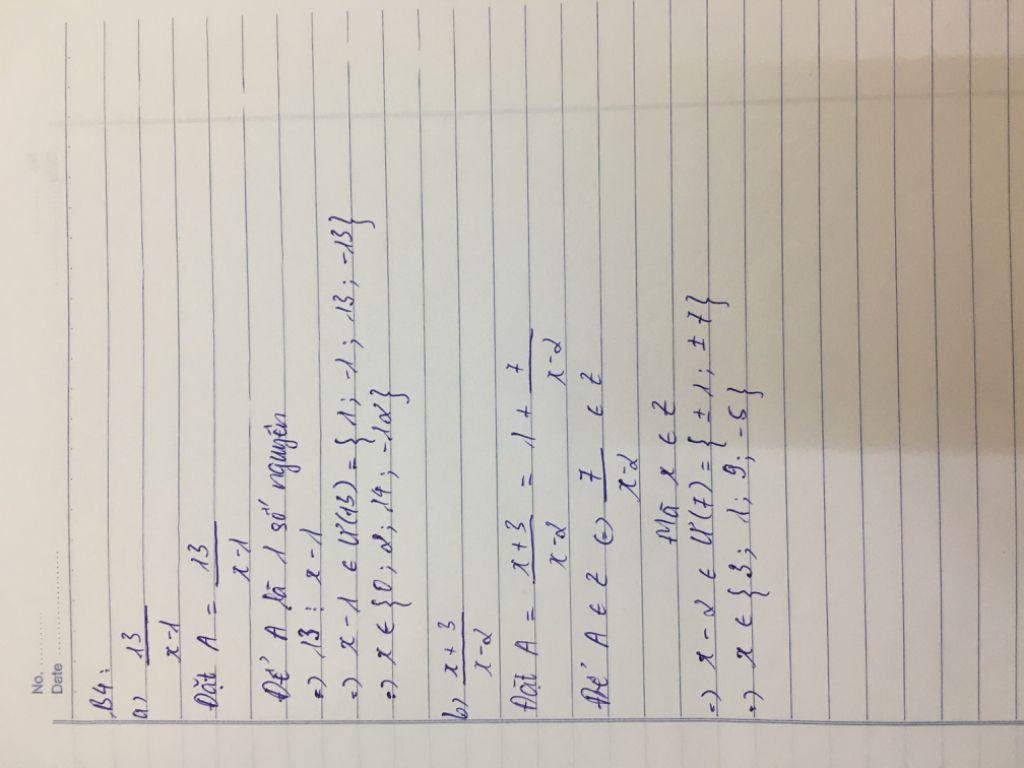 No. ..........
Date ....................
B4:
a) 13/x-1
Đặt A = 13/x-1
Để A là 1 số nguyên
=) 13 ⋮ x-1
=) x-1 ∈ Ư(13) = {1; -1; 13; -13}
=) x ∈ {0; 2; 14; -12}
b) x+3/x-2
Đặt A = x+3/x-2 = 1 + 7/x-2
Để A ∈ Z (=) 7/x-2 ∈ Z
Mà x ∈ Z
=) x-2 ∈ Ư(7) = {±1; ±7}
=) x ∈ {3; 1; 9; -5}